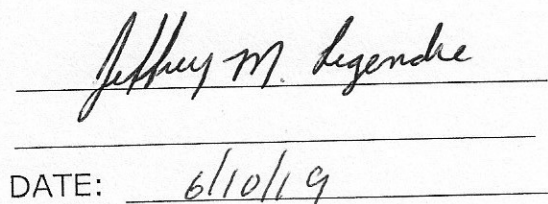 Jeffrey M. Legendre
DATE: 6/10/19